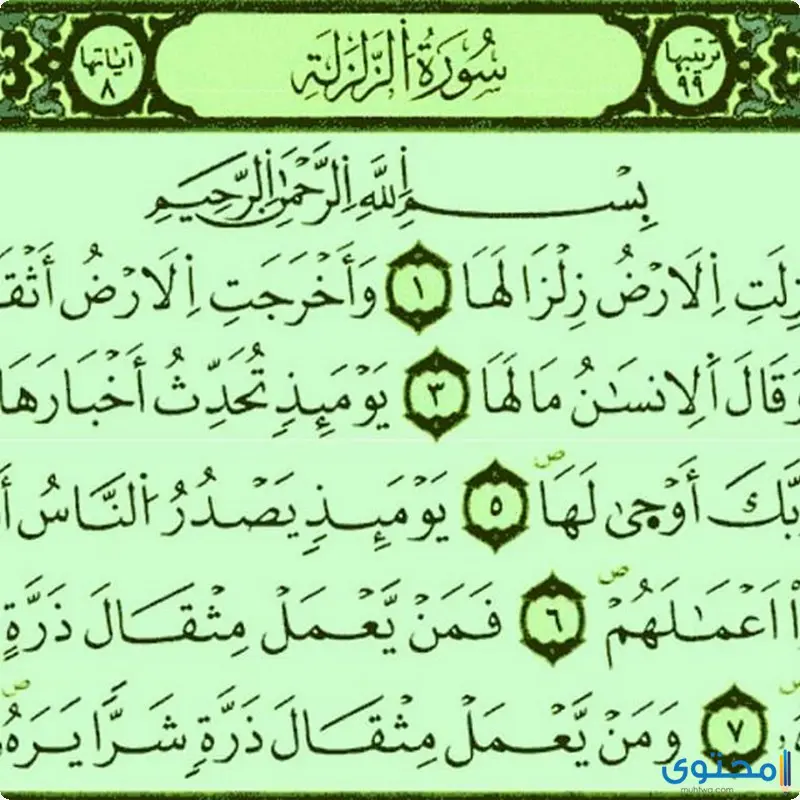 ترتيبها ٩٩ سُورَةُ الزَّلْزَلَةِ آياتها ٨
بِسْمِ اللَّهِ الرَّحْمَٰنِ الرَّحِيمِ
زِلَتِ اِلَارْضُ زِلْزَالَهَا ١ وَأَخْرَجَتِ اِلَارْضُ أَثْقَ
وَقَالَ اَلِانسَٰنُ مَا لَهَا ٣ يَوْمَئِذٍ تُحَدِّثُ أَخْبَارَهَا
بَّكَ أَوْحَىٰ لَهَا ص ٥ يَوْمَئِذٍ يَصْدُرُ اُلنَّاسُ أَ
اْ اَعْمَٰلَهُمْ ص ٦ فَمَنْ يَّعْمَلْ مِثْقَالَ ذَرَّةٍ
٧ وَمَنْ يَّعْمَلْ مِثْقَالَ ذَرَّةٍ شَرّاً يَرَهُ ص
محتوى
muhtwa.com